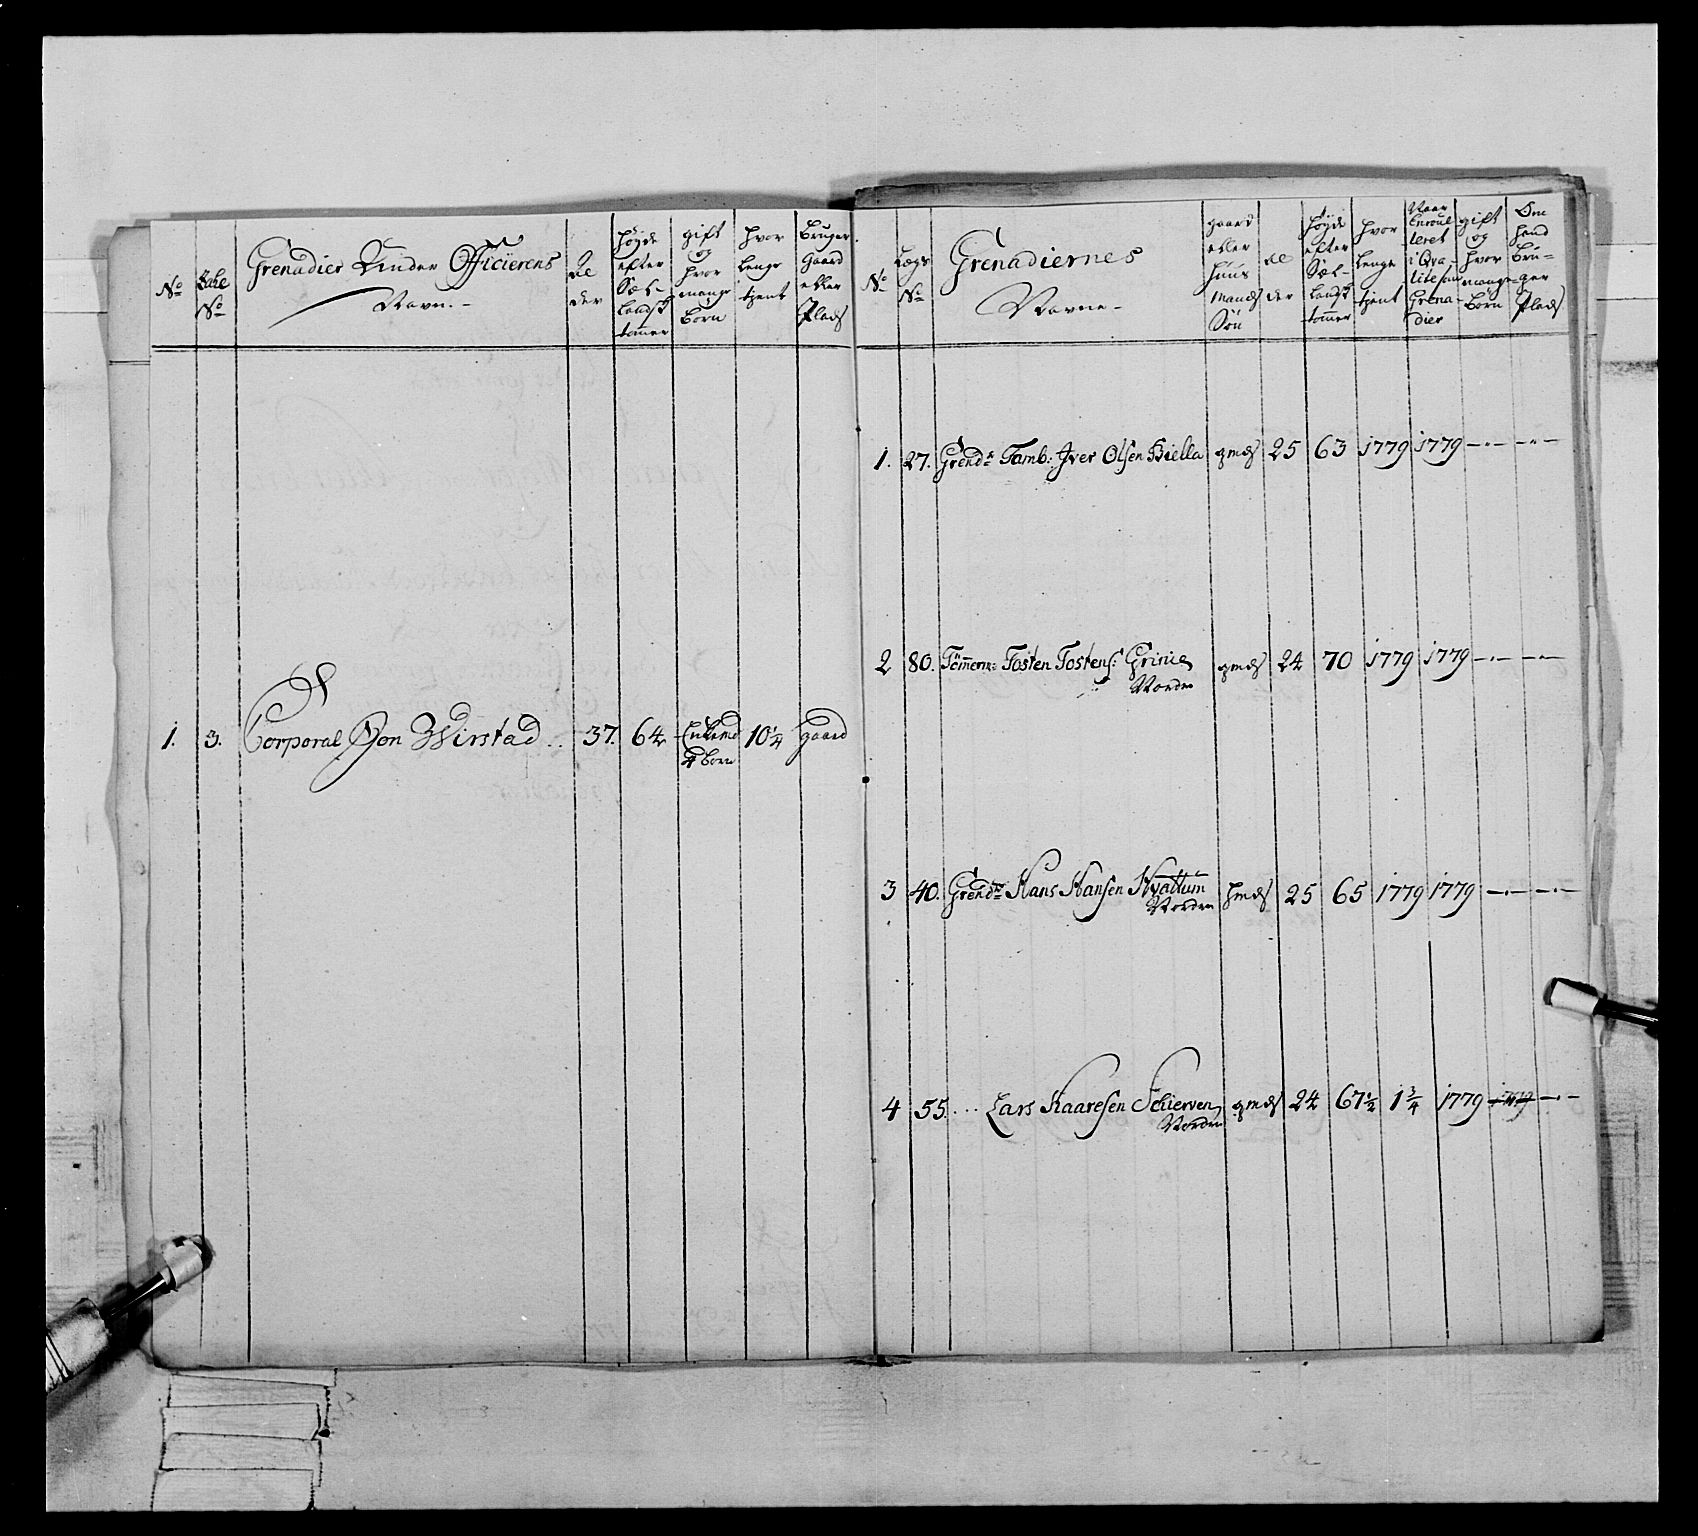 No
No
Grenadier Under Officerens
Navn.
Al
der
høyde
efter
Siæl-
landsk
tommer
gift
og
hvor
mange
børn
hvor
lenge
tient
bruger
gaard
eller
Plads
1. 3. Corporal Jon Wirstad .. 37. 64 Enkemd 10 1/4 gaard
4 børn
No
Lægs
No
Grenadiernes
Navne
gaard
eller
huus
mands
Søn
al
der
høyde
efter
Siæl-
landsk
tommer
hvor
lenge
tient
Naar
Enroul
leret
i Qva-
lite som
Grena-
dier
gift
og
hvor
mange
børn
Om
hand
bru-
ger
Plads
1. 27. Grendr Tamb: Iver Olsen Biella gmds 25 63 1779 1779 -.- -.-
2 80. Tömerm: Tosten Tostens: Grinie gmds 24 70 1779 1779 -.- -.-
Nordre
3 40. Grendr Hans Hansen Hvattum hmds 25 65 1779 1779 -.- -.-
Nordre
4 55. ... Lars Kaaresen Schierven gmds 24 67 1/2 1 3/4 1779 -.-
Nordre